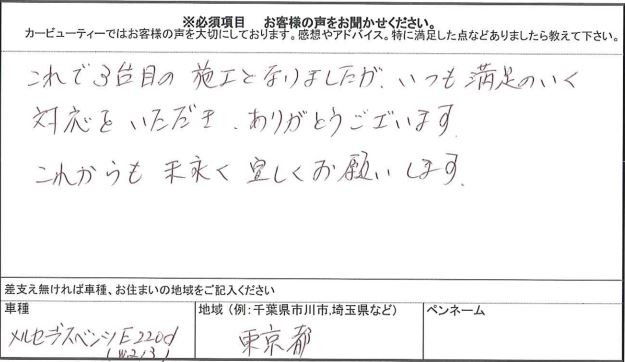 ※必須項目　お客様の声をお聞かせください。
カービューティーではお客様の声を大切にしております。感想やアドバイス。特に満足した点などありましたら教えて下さい。
これで3台目の施工となりましたが、いつも満足のいく
対応をいただき、ありがとうございます。
これからも末永く宜しくお願いします。
差支え無ければ車種、お住まいの地域をご記入ください
車種
地域（例：千葉県市川市,埼玉県など）
ペンネーム
メルセデスベンツE220d
(W213)
東京都